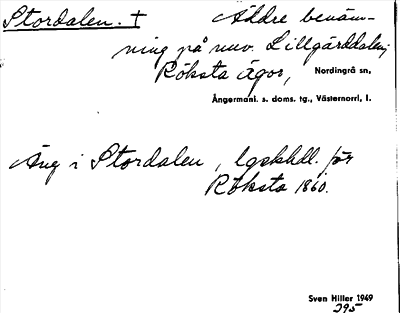 Stordalen. † Äldre benäm-
ning på nuv. Lillgärddalen,
Röksta ägor, Nordingrå sn,
Ångermanl. s. doms. tg., Västernorrl. l.
Äng i Stordalen, lgskhdl. för
Röksta 1860.
Sven Hiller 1949
295